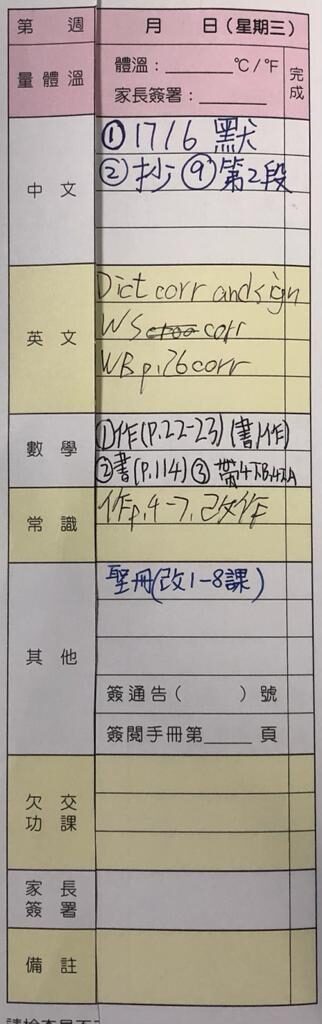 第 週 月 日(星期三)
量體溫 體溫：______℃/℉ 完成
家長簽署：______
中文 ①17/6 默
② 抄 ⑨ 第2段
英文 Dict corr and sign
WS corr
WB p.26 corr
數學 ①作(P.22-23)(書/作)
②書(P.114) ③ 帶4下B,4下A
常識 作p.4-7,改作
其他 聖冊(改1-8課)
簽通告( )號
簽閱手冊第____頁
欠交功課
家長簽署
備註